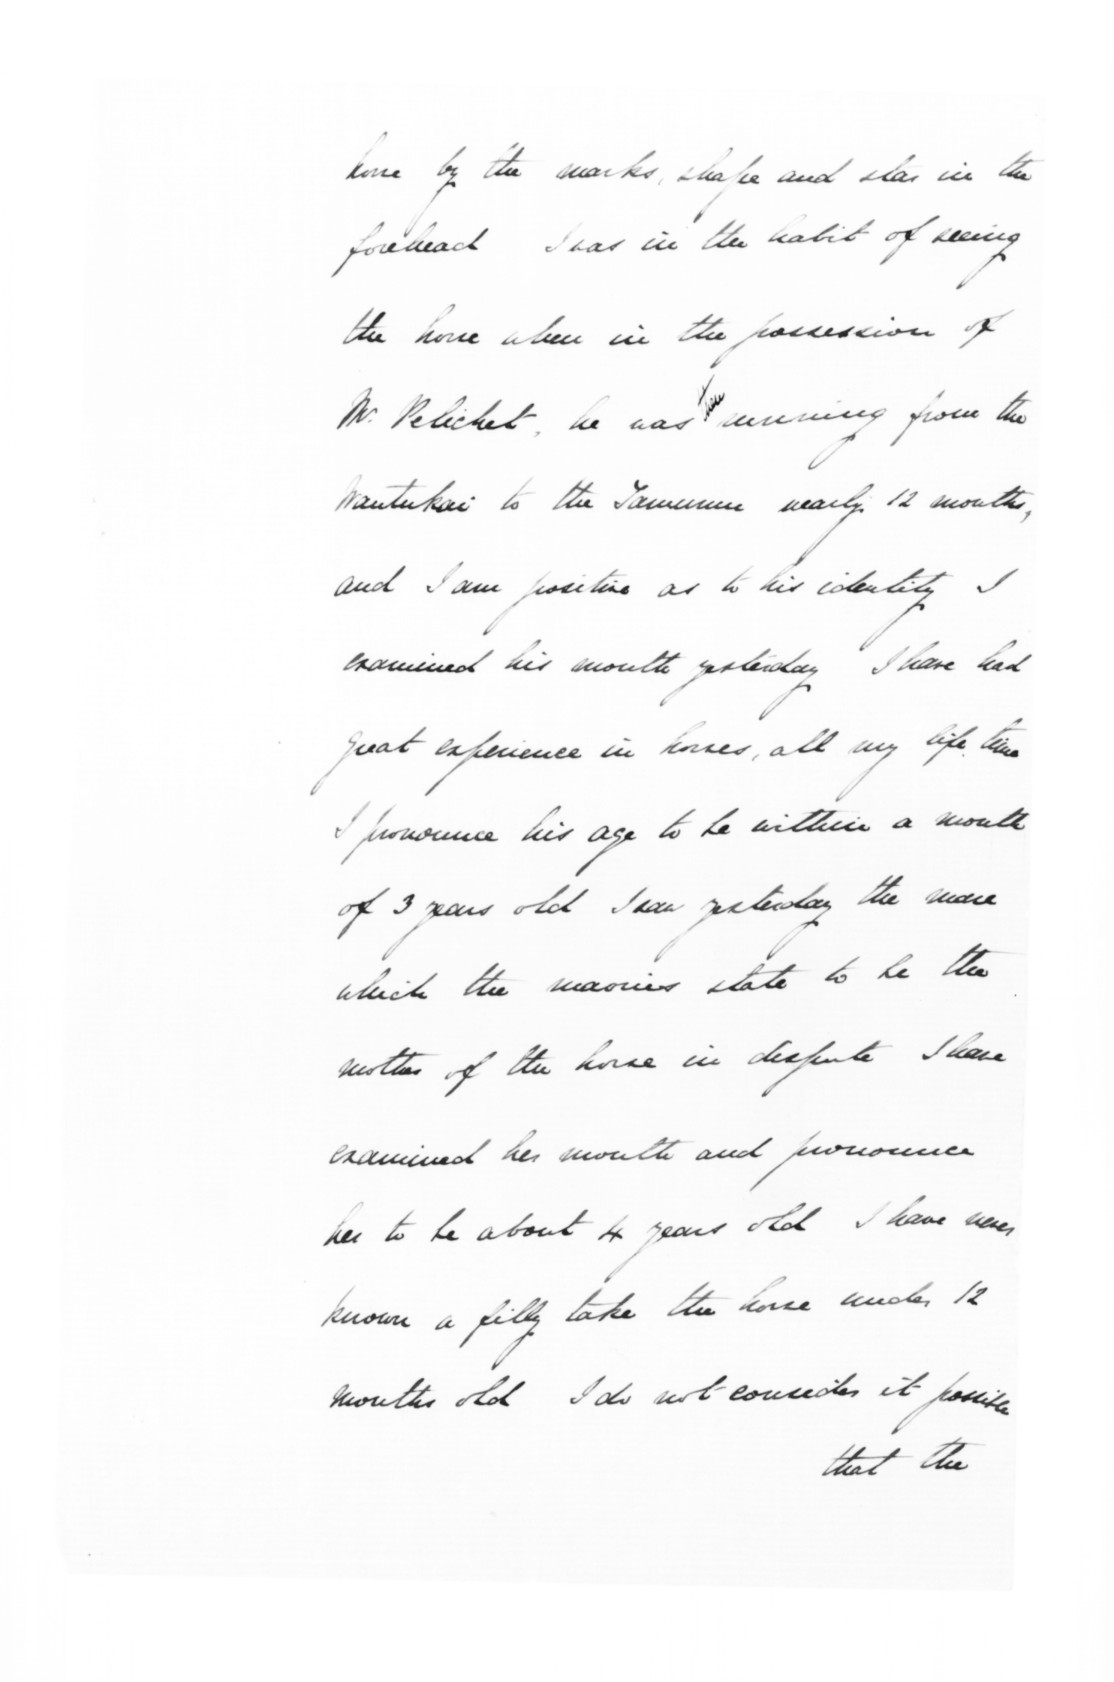 horse by the marks, shape and star in the
forehead I was in the habit of seeing
the horse when in the possession of
Mr. Pelichet, he was then running from the
to the nearly 12 months,
and I am positive as to his identity I
examined his mouth yesterday I have had
great experience in horses, all my life time
I pronounce his age to be within a month
of 3 years old I saw yesterday the mare
which the maories state to be the
mother of the horse in dispute I have
examined her mouth and pronounce
her to be about 4 years old I have never
known a filly take the horse under 12
months old I do not consider it possible
that the